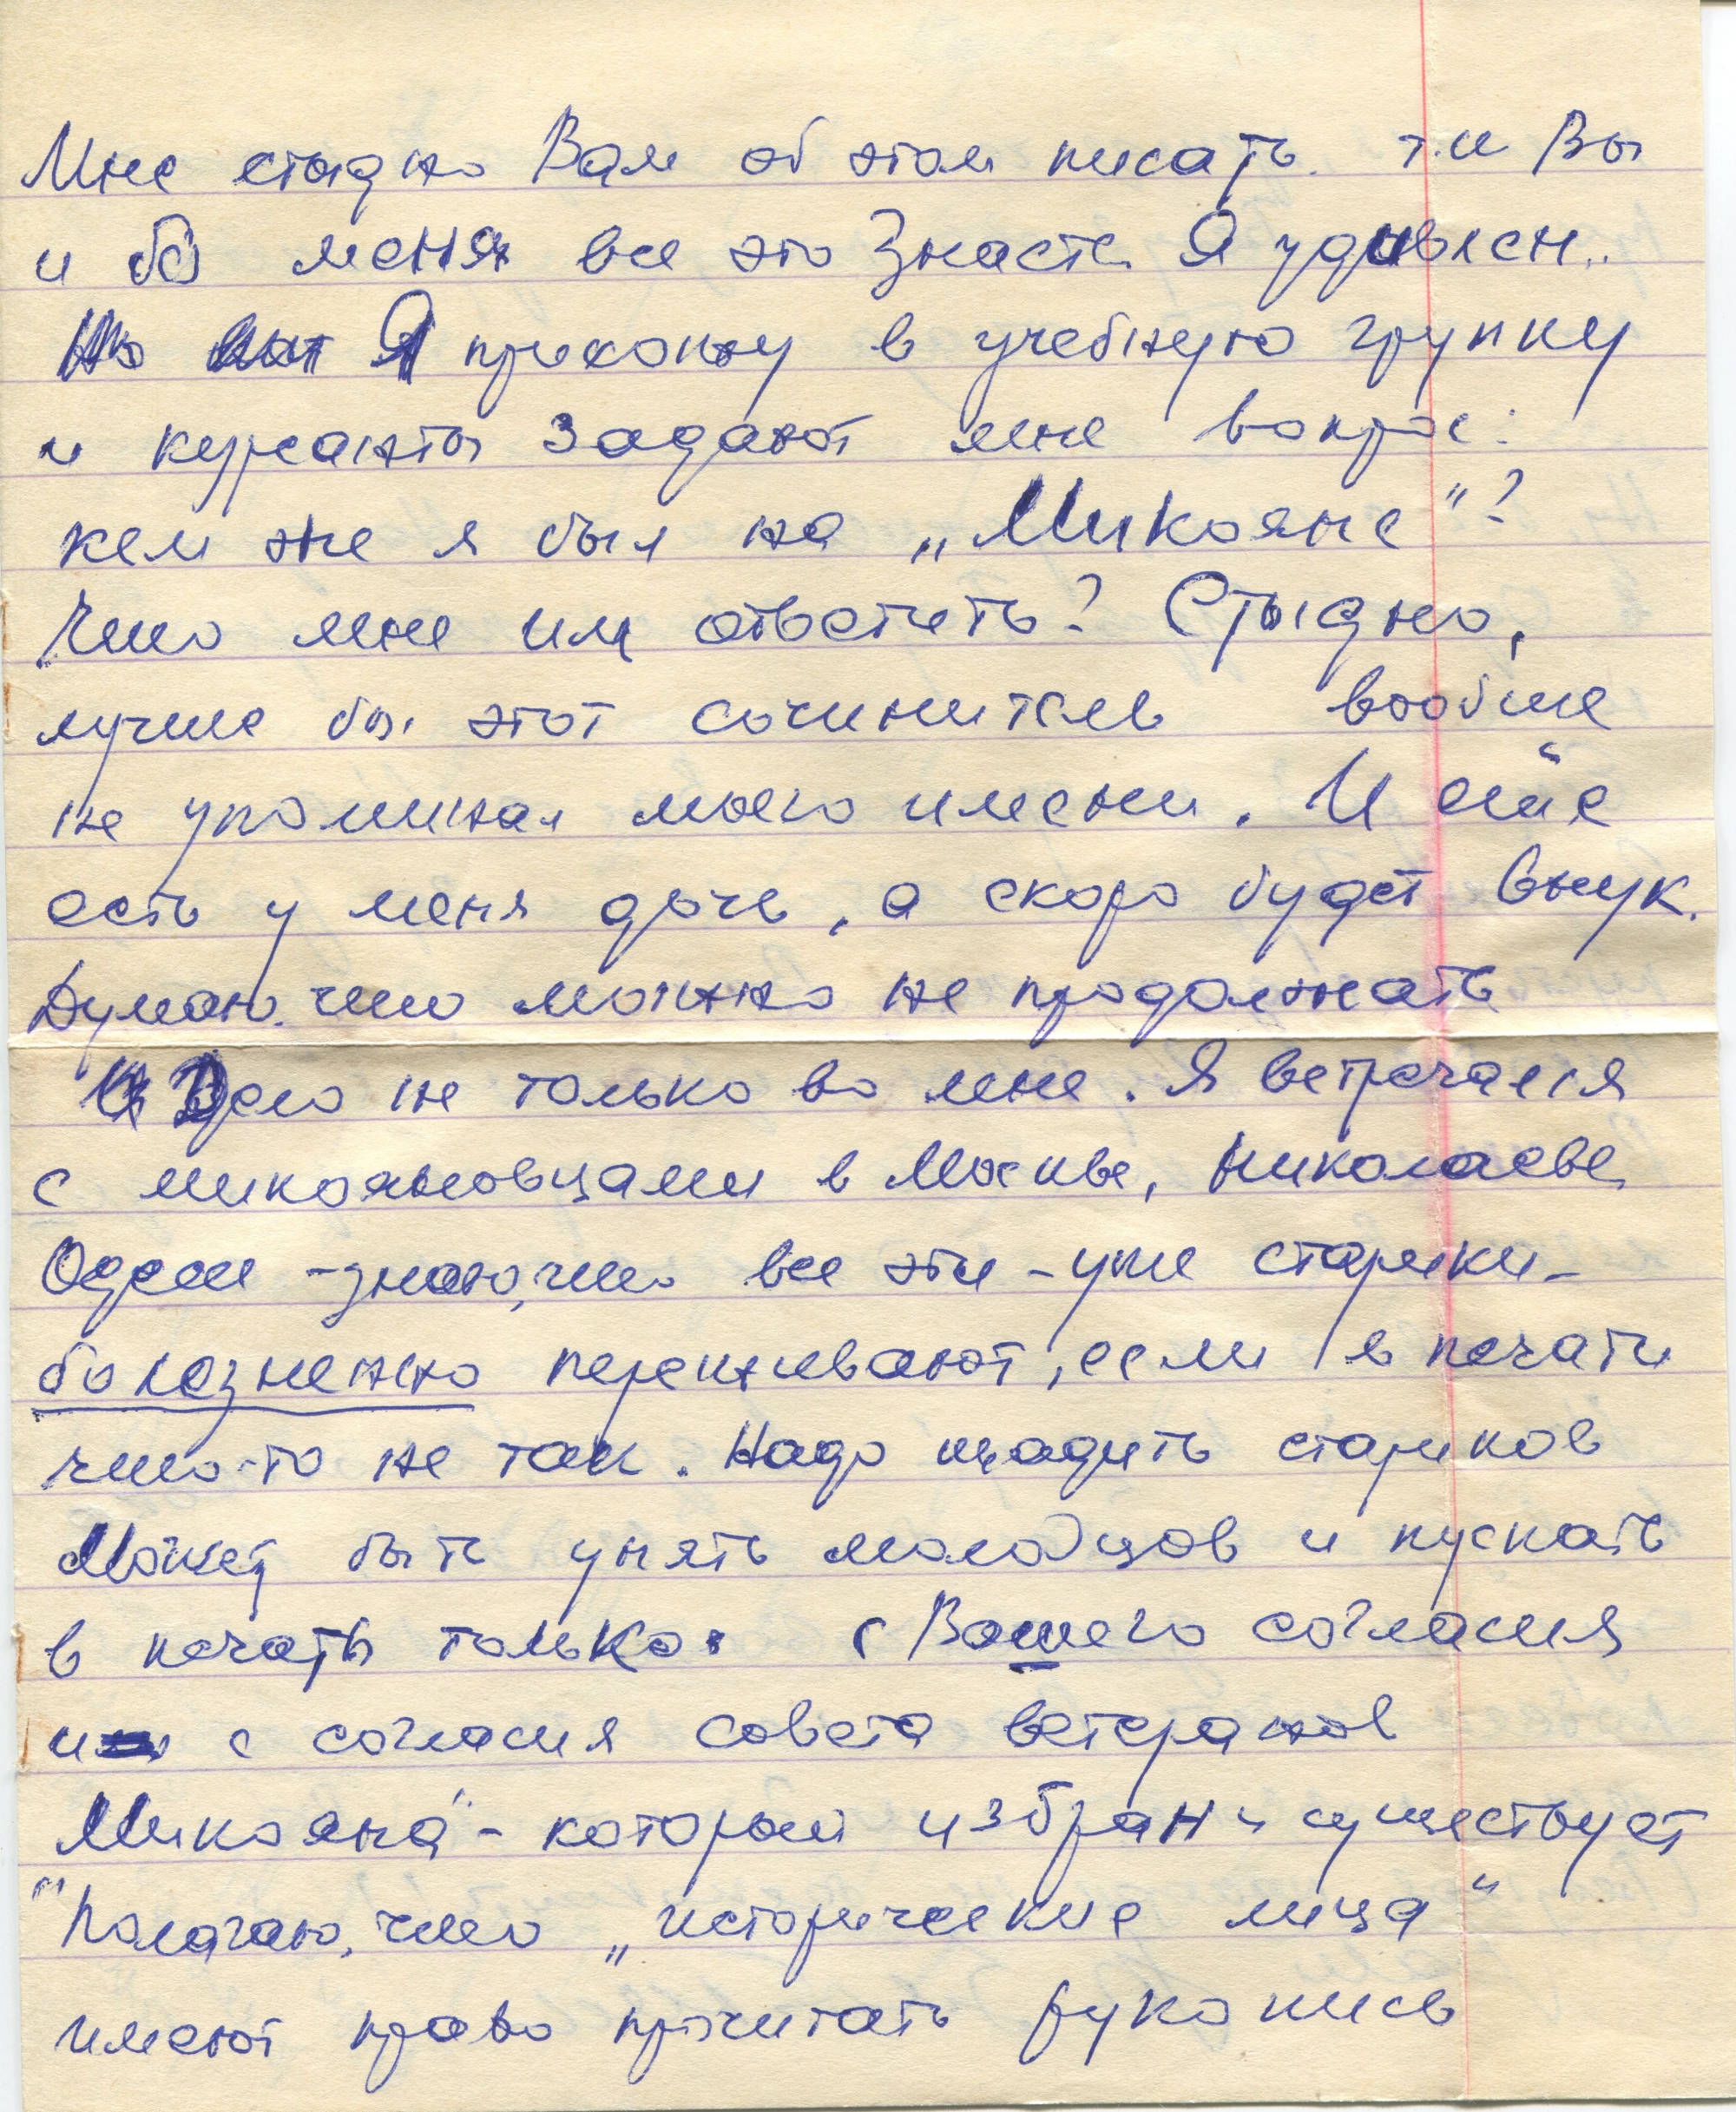 Мне стыдно Вам об этом писать. т.к Вы
и без меня все это знаете. Я удивлен..
Но вот Я прихожу в учебную группу
и курсанты задают мне вопрос:
кем же я был на „Микояне"?
Что мне им ответить? Стыдно,
лучше бы этот сочинитель вообще
не упоминал моего имени. И ещё
есть у меня дочь, а скоро будет внук.
Думаю, что можно не продолжать
Дело не только во мне. Я встречался
с микояновцами в Москве, Николаеве,
Одессе - знаю, что все эти - уже старики -
болезненно переживают, если в печати
что-то не так. Надо щадить стариков
Может быть унять молодцов и пускать
в печать только с Вашего согласия
и с согласия совета ветеранов
"Микояна" - который избран и существует
Полагаю, что „исторические лица"
имеют право прочитать рукопись